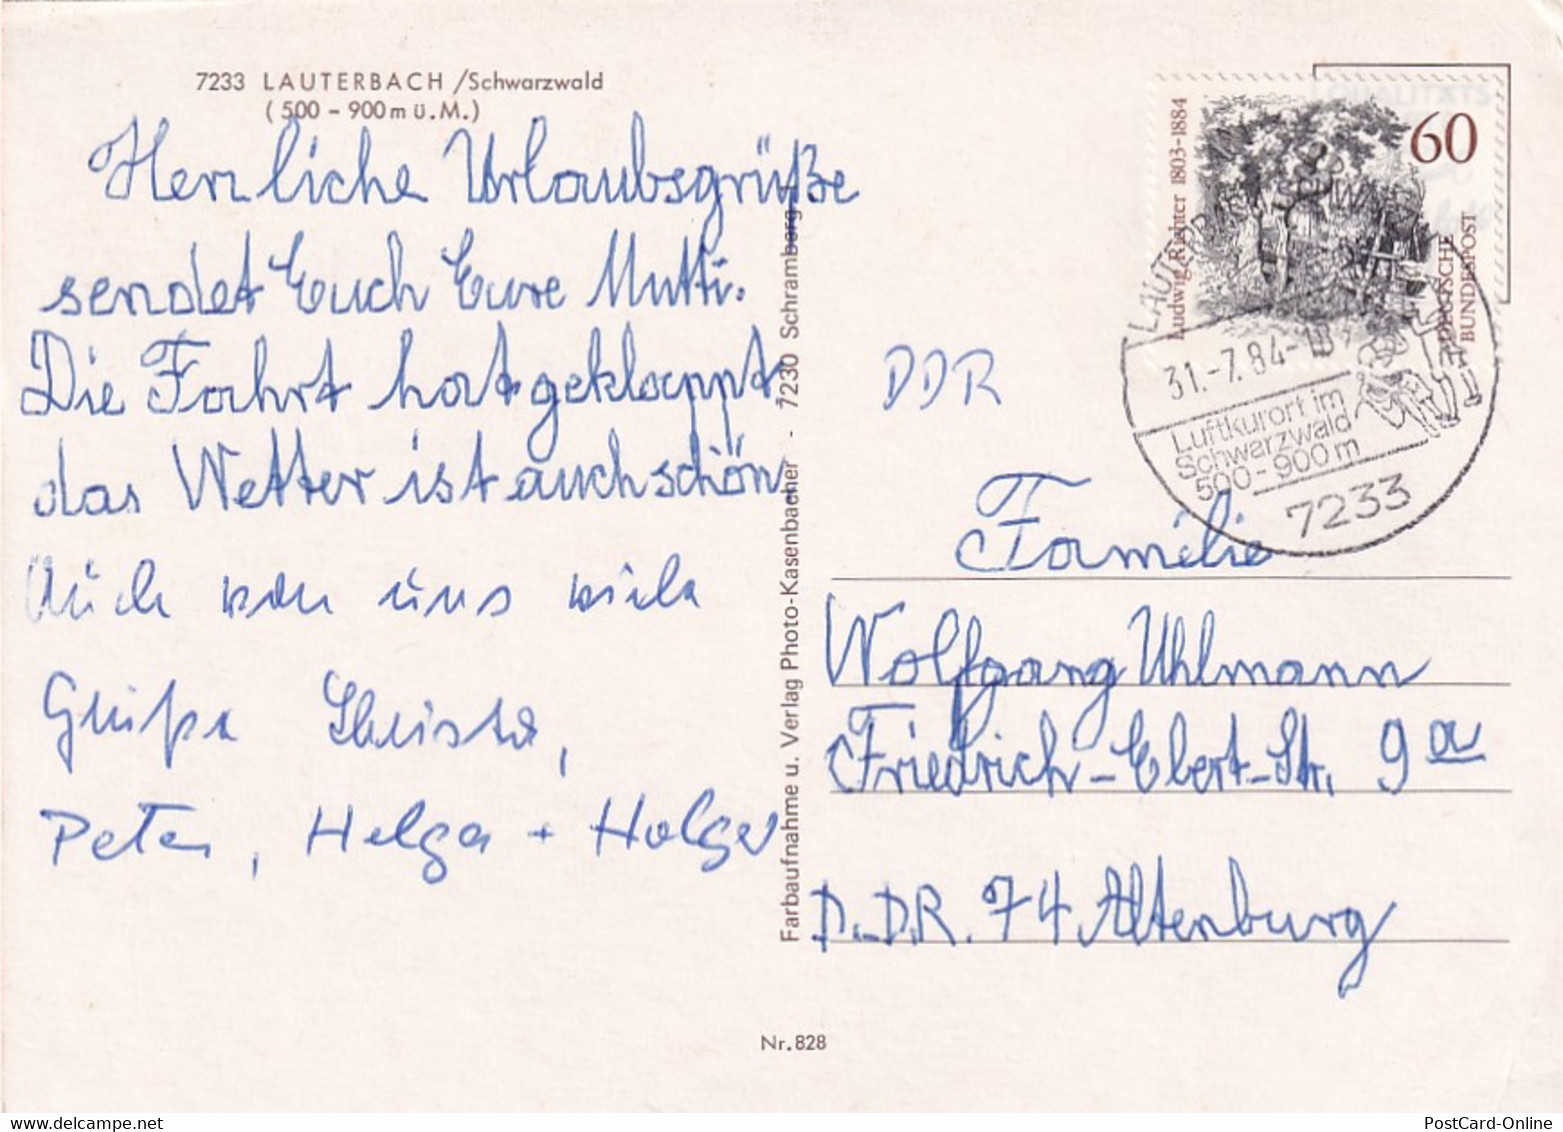 7233 LAUTERBACH /Schwarzwald
(500 - 900 m ü. M.)
Herzliche Urlaubsgrüße
sendet Euch Eure Mutti.
Die Fahrt hat geklappt,
das Wetter ist auch schön.
Auch von uns viele
Grüße Christa,
Peter, Helga + Holger
Farbaufnahme u. Verlag Photo-Kasenbacher - 7230 Schramberg
Nr. 828
Ludwig Richter 1803-1884
60
DEUTSCHE
BUNDESPOST
LAUTERBACH
31.-7.84-
Luftkurort im
Schwarzwald
500-900 m
7233
DDR
Familie
Wolfgang Uhlmann
Friedrich-Ebert-Str. 9a
D.D.R. 74 Altenburg
PostCard-Online